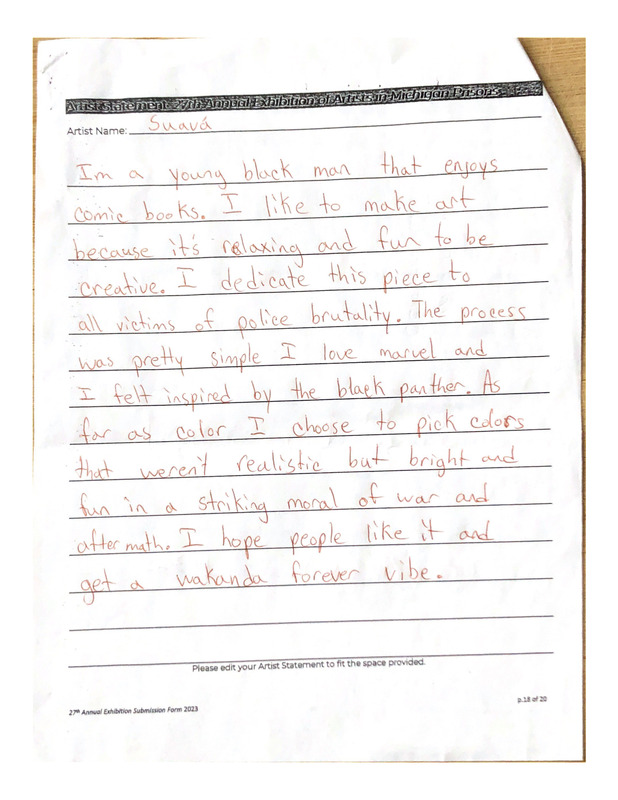 Artist Statement - 27th Annual Exhibition of Artists in Michigan Prisons
Artist Name: Suavá
Im a young black man that enjoys
comic books. I like to make art
because it's relaxing and fun to be
creative. I dedicate this piece to
all victims of police brutality. The process
was pretty simple I love marvel and
I felt inspired by the black panther. As
far as color I choose to pick colors
that weren't realistic but bright and
fun in a striking moral of war and
after math. I hope people like it and
get a wakanda forever vibe.
Please edit your Artist Statement to fit the space provided.
27th Annual Exhibition Submission Form 2023
p.18 of 20